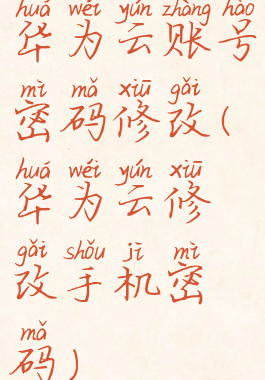 huá wéi yún zhàng hào
华为云账号
mì mǎ xiū gǎi
密码修改(
huá wéi yún xiū
华为云修
gǎi shǒu jī mì
改手机密
mǎ
码)